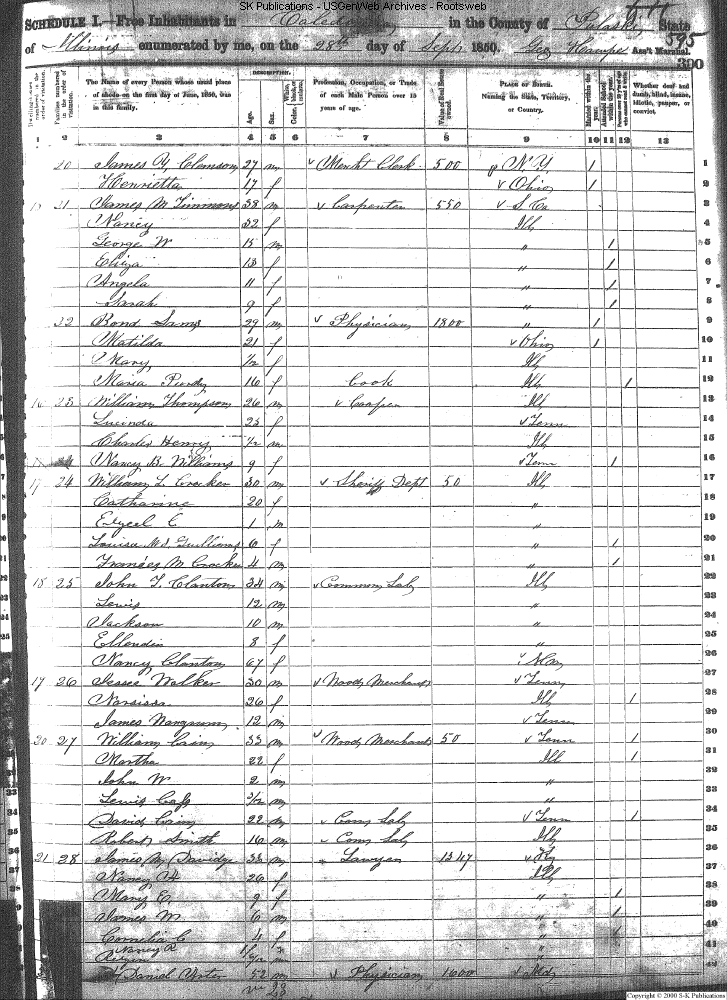 SK Publications - USGenWeb Archives - Rootsweb
SCHEDULE I.—Free Inhabitants in Caledonia in the County of Pulaski State
of Illinois enumerated by me, on the 28th day of Sept 1850. Ass't Marshal.
595
390
DESCRIPTION.
Dwelling-houses numbered in the order of visitation.
Families numbered in the order of visitation.
The Name of every Person whose usual place of abode on the first day of June, 1850, was in this family.
Age.
Sex.
Profession, Occupation, or Trade of each Male Person over 15 years of age.
Value of Real Estate owned.
PLACE OF BIRTH. Naming the State, Territory, or Country.
Married within the year.
Whether deaf and dumb, blind, insane, idiotic, pauper, or convict.
1 2 3 4 5 6 7 8 9 10 11 12 13
20 James Y. Clemson 27 m Mercht Clerk 500 N.Y. 1 1
Henrietta 17 f Ohio 1 2
21 James M Timmons 38 m Carpenter 550 S. Ca 3
Nancy 32 f Ills 4
George W 15 m " 1 5
Eliza 13 f " 1 6
Angela 11 f " 1 7
Sarah 9 f " 1 8
22 Bond 29 m Physician 1800 " 1 9
Matilda 21 f Ohio 1 10
Mary 1/2 f Ills 11
Maria Purdy 16 f Cook Ills 1 12
23 William Thompson 26 m Cooper Ills 13
Lucinda 23 f Tenn 14
Charles Henry 1/2 m Ills 15
Nancy B. Williams 9 f Tenn 1 16
24 William L. Crocker 30 m Sheriff Dept 50 Ills 17
Catharine 20 f " 18
1 m " 19
6 f " 1 20
Frances M Crocker 4 m " 1 21
18 25 John T. Clanton 34 m Common Lab Ills 22
Lewis 12 m " 23
Jackson 10 m " 24
8 f " 25
Nancy Clanton 67 f 26
26 Jesse Walker 30 m Wood Merchant Tenn 27
Narsissa 26 f Ills 1 28
James 12 m Tenn 29
20 27 William Cain 33 m Wood Merchant 50 Tenn 1 30
Martha 22 f Ill 1 31
John W 2 m " 32
Lewis Cass 3/12 m " 33
David Cain 22 m Com Lab Tenn 1 34
Robert Smith 16 m Com Lab Ills 35
21 28 James M Davidge 33 m Lawyer Ky 36
Nancy H 26 f Ills 37
Mary E. 9 f " 1 38
James M 6 m " 1 39
Cornelia C 4 f " 40
Nancy R
Daniel 52 m Physician 1600 Md
Copyright © 2000 S-K Publications